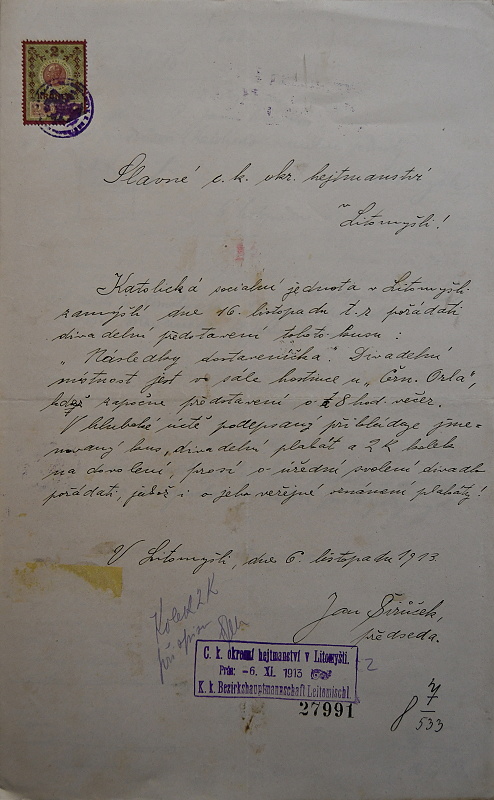 2
Slavné c. k. okr. hejtmanství
v Litomyšli!
Katolická socialní jednota v Litomyšli
zamýšlí dne 16. listopadu t. r. pořádati
divadelní představení tohoto kusu:
„Následky dostaveníčka." Divadelní
místnost jest ve sále hostince u „Čern. Orla",
kdež započne představení o 8 hod. večer.
V hluboké úctě podepsaný přikládaje jme-
novaný kus, divadelní plakát a 2 K kolek
na dovolení, prosí o úřední svolení divadlo
pořádati, jakož i o jeho veřejné oznámení plakáty!
V Litomyšli, dne 6. listopadu 1913.
Jan Širůček,
předseda.
Kolek 2 K
při spisu
C. k. okresní hejtmanství v Litomyšli.
Präs: -6. XI. 1913
K. k. Bezirkshauptmannschaft Leitomischl.
27991
8 7/533